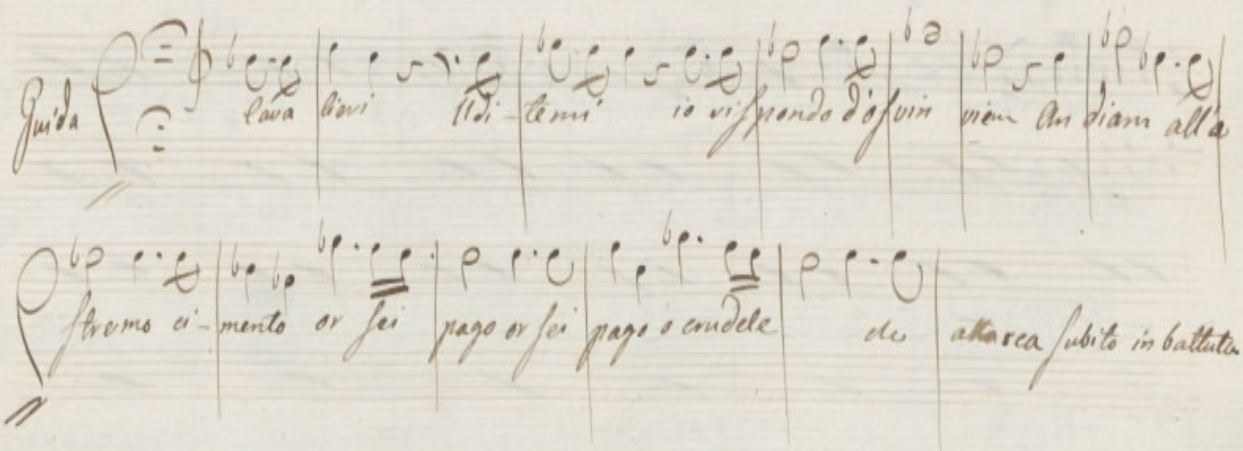 Guida Cava lieri Udi - temi io rispondo d'ognun vien An diam all'e
stremo ci - mento or sei pago or sei pago o crudele etc attacca subito in battuta